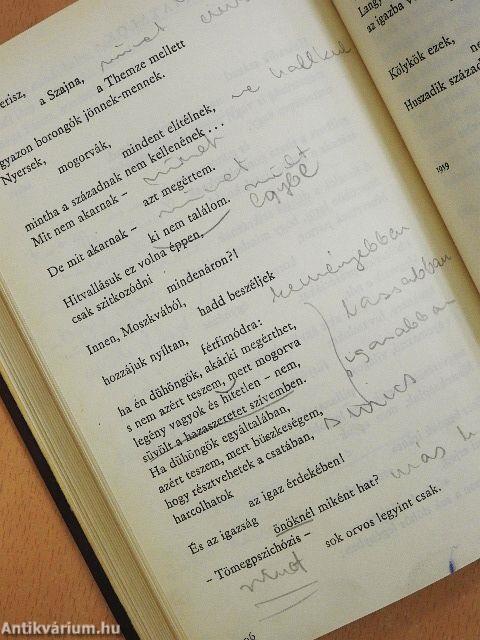 erisz, a Szajna, a Themze mellett
gyazon borongók jönnek-mennek.
Nyersek, mogorvák, mindent elítélnek,
mintha a századnak nem kellenének ...
Mit nem akarnak – azt megértem.
De mit akarnak – ki nem találom.
Hitvallásuk ez volna éppen,
csak szitkozódni mindenáron?!
Innen, Moszkvából, hadd beszéljek
hozzájuk nyíltan, férfimódra:
ha én dühöngök, akárki megérthet,
s nem azért teszem, mert mogorva
legény vagyok és hitetlen – nem,
süvölt a hazaszeretet szívemben.
Ha dühöngök egyáltalában,
azért teszem, mert büszkeségem,
hogy résztvehetek a csatában,
harcolhatok az igaz érdekében!
És az igazság önöknél miként hat?
– Tömegpszichózis – sok orvos legyint csak.
egybe
keményebben
lassabban
más
Langy
az igazba v
Kölykök ezek,
Huszadik század
1919
Antikvárium.hu